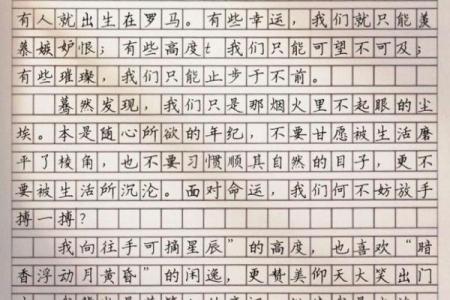 有人就出生在罗马。有些幸运，我们就只能羡
慕嫉妒恨；有些高度t我们只能可望不可及；
有些璀璨，我们只能止步于不前。
蓦然发现，我们只是那烟火里不起眼的尘
埃。本是随心所欲的年纪，不要甘愿被生活磨
平了棱角，也不要习惯顺其自然的日子，更不
要被生活所沉沦。面对命运，我们何不妨放手
搏一搏？
我向往手可摘星辰”的高度，也喜欢“暗
香浮动月黄昏”的闲逸，更赞美仰天大笑出门